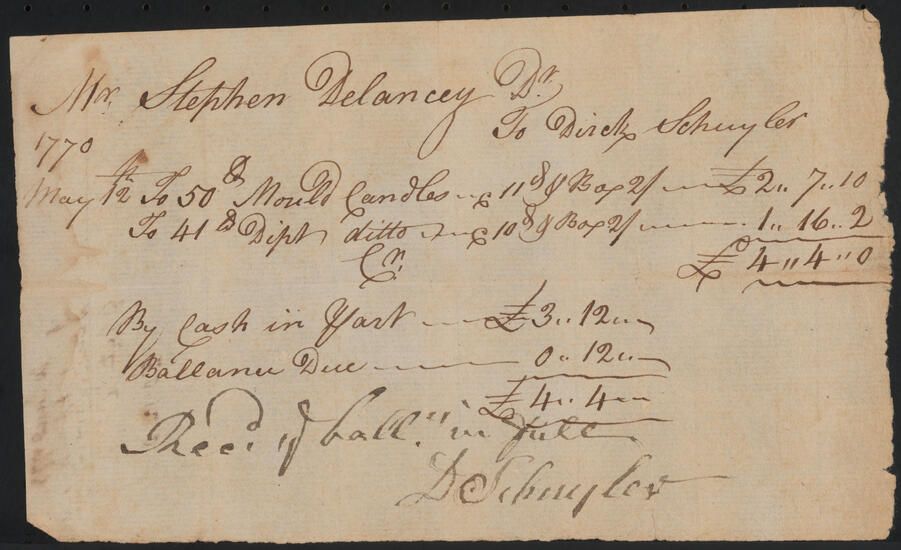 Mr. Stephen Delancey Dr.
To Dirck Schuyler
1770
May 12th To 50 lb Mould Candles 11d & Box 2/ £2,, 7,, 10
To 41 lb Dipt ditto 10d & Box 2/ 1,, 16,, 2
£4,, 4,, 0
Cr.
By Cash in Part £3,, 12,,
Ballance Due 0,, 12,,
£4,, 4
Rec'd ye ball.ce in full
D Schuyler